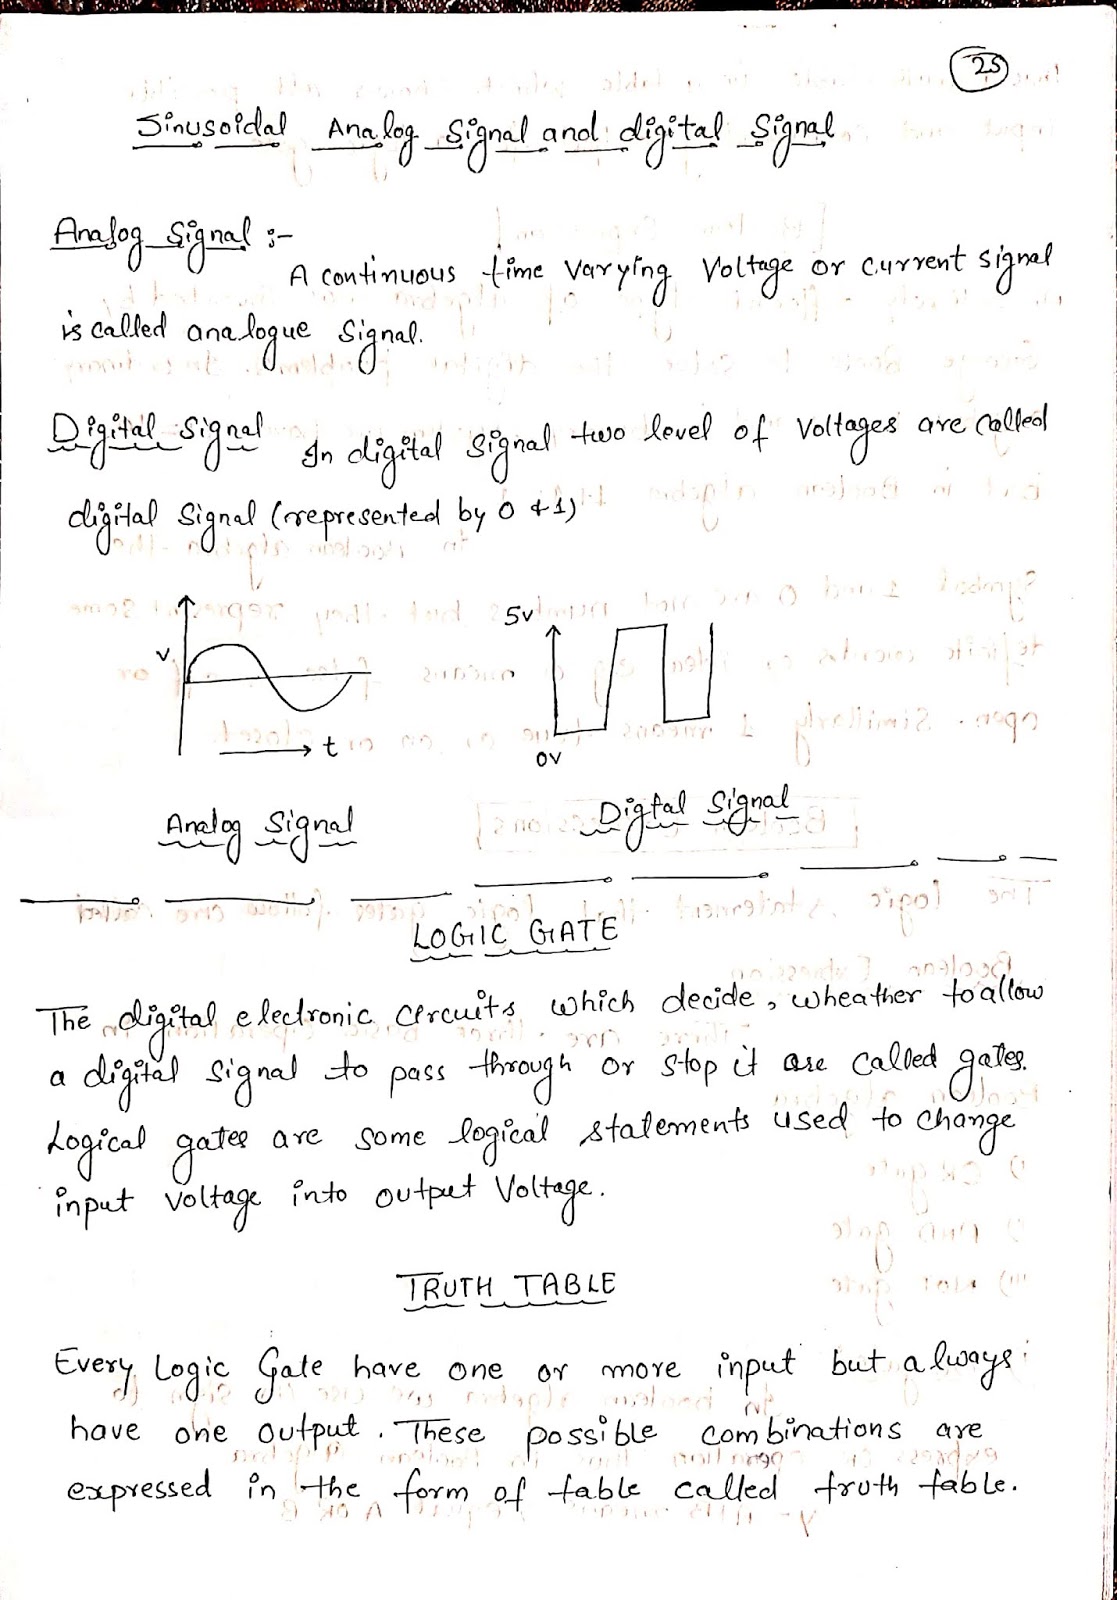 25
Sinusoidal Analog Signal and digital Signal
Analog Signal :-
A continuous time varying Voltage or current signal
is called analogue Signal.
Digital Signal
In digital Signal two level of Voltages are called
digital Signal (represented by 0 & 1)
5v
v
t
0v
Analog Signal
Digtal Signal
LOGIC GATE
The digital electronic circuits which decide, wheather to allow
a digital Signal to pass through or stop it are called gates.
Logical gates are some logical statements used to change
input voltage into output Voltage.
TRUTH TABLE
Every Logic Gate have one or more input but always
have one output. These possible combinations are
expressed in the form of table called truth table.